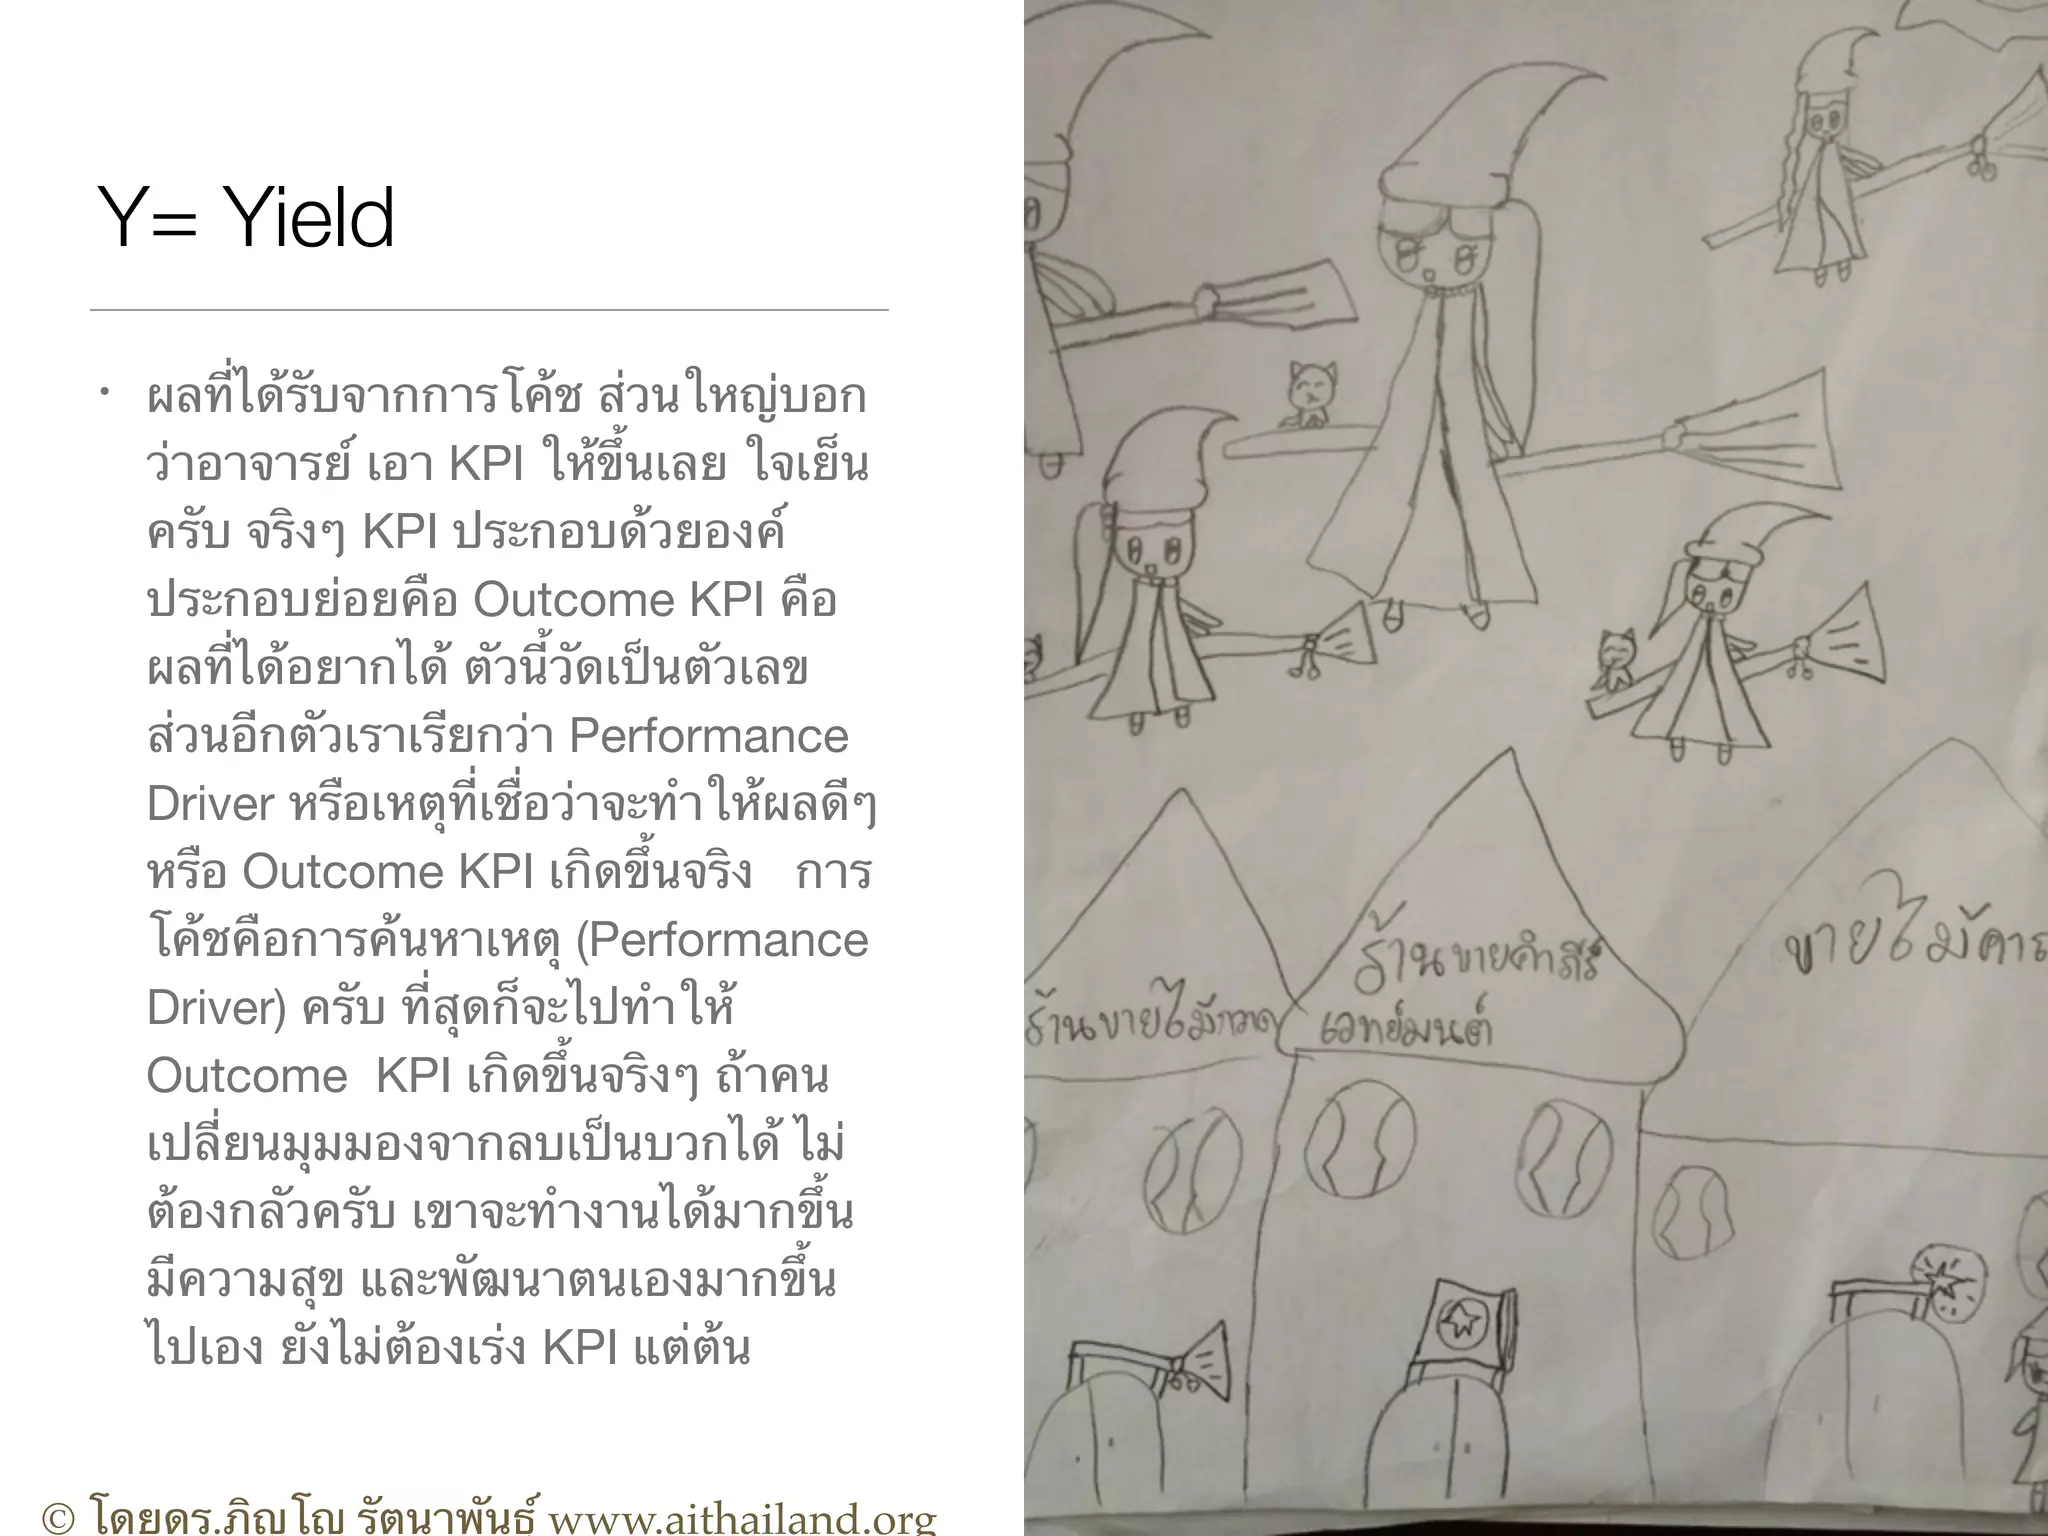 Y= Yield
• ผลที่ได้รับจากการโค้ช ส่วนใหญ่บอก
ว่าอาจารย์ เอา KPI ให้ขึ้นเลย ใจเย็น
ครับ จริงๆ KPI ประกอบด้วยองค์
ประกอบย่อยคือ Outcome KPI คือ
ผลที่ได้อยากได้ ตัวนี้วัดเป็นตัวเลข
ส่วนอีกตัวเราเรียกว่า Performance
Driver หรือเหตุที่เชื่อว่าจะทำให้ผลดีๆ
หรือ Outcome KPI เกิดขึ้นจริง การ
โค้ชคือการค้นหาเหตุ (Performance
Driver) ครับ ที่สุดก็จะไปทำให้
Outcome KPI เกิดขึ้นจริงๆ ถ้าคน
เปลี่ยนมุมมองจากลบเป็นบวกได้ ไม่
ต้องกลัวครับ เขาจะทำงานได้มากขึ้น
มีความสุข และพัฒนาตนเองมากขึ้น
ไปเอง ยังไม่ต้องเร่ง KPI แต่ต้น
© โดยดร.ภิญโญ รัตนาพันธุ์ www.aithailand.org
ร้านขายไม้กวาด
ร้านขายคำภีร์
เวทย์มนต์
ขายไม้คา